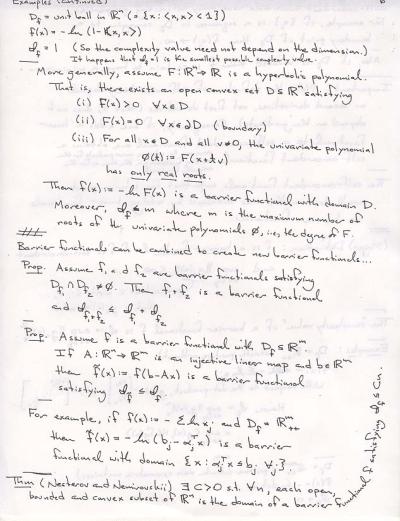 Examples (continued)
D_f = unit ball in ℝⁿ (= {x: <x,x> < 1})
f(x) = -ln (1-<x,x>)
ϑ_f = 1 (So the complexity value need not depend on the dimension.)
It happens that ϑ_f = 1 is the smallest possible complexity value.
More generally, assume F: ℝⁿ → ℝ is a hyperbolic polynomial.
That is, there exists an open convex set D ⊆ ℝⁿ satisfying
(i) F(x) > 0 ∀x∈D
(ii) F(x) = 0 ∀x∈∂D (boundary)
(iii) For all x∈D and all v≠0, the univariate polynomial
Ø(t) := F(x+tv)
has only real roots.
Then f(x) := -ln F(x) is a barrier functional with domain D.
Moreover, ϑ_f ≤ m where m is the maximum number of
roots of the univariate polynomials Ø, i.e., the degree of F.
Barrier functionals can be combined to create new barrier functionals...
Prop. Assume f₁ and f₂ are barrier functionals satisfying
D_f₁ ∩ D_f₂ ≠ Ø. Then f₁+f₂ is a barrier functional
and ϑ_f₁+f₂ ≤ ϑ_f₁ + ϑ_f₂
Prop: Assume f is a barrier functional with D_f ⊆ ℝᵐ.
If A: ℝⁿ → ℝᵐ is an injective linear map and b∈ℝᵐ
then f̃(x) := f(b-Ax) is a barrier functional
satisfying ϑ_f̃ ≤ ϑ_f.
For example, if f(x) := - Σ ln x_j and D_f = ℝᵐ₊₊
then f̃(x) = - ln (b_j - α_jᵀx) is a barrier
functional with domain {x: α_jᵀx ≤ b_j ∀j}.
Thm (Nesterov and Nemirovskii) ∃ C>0 s.t. ∀n, each open,
bounded and convex subset of ℝⁿ is the domain of a barrier functional f satisfying ϑ_f ≤ Cn.